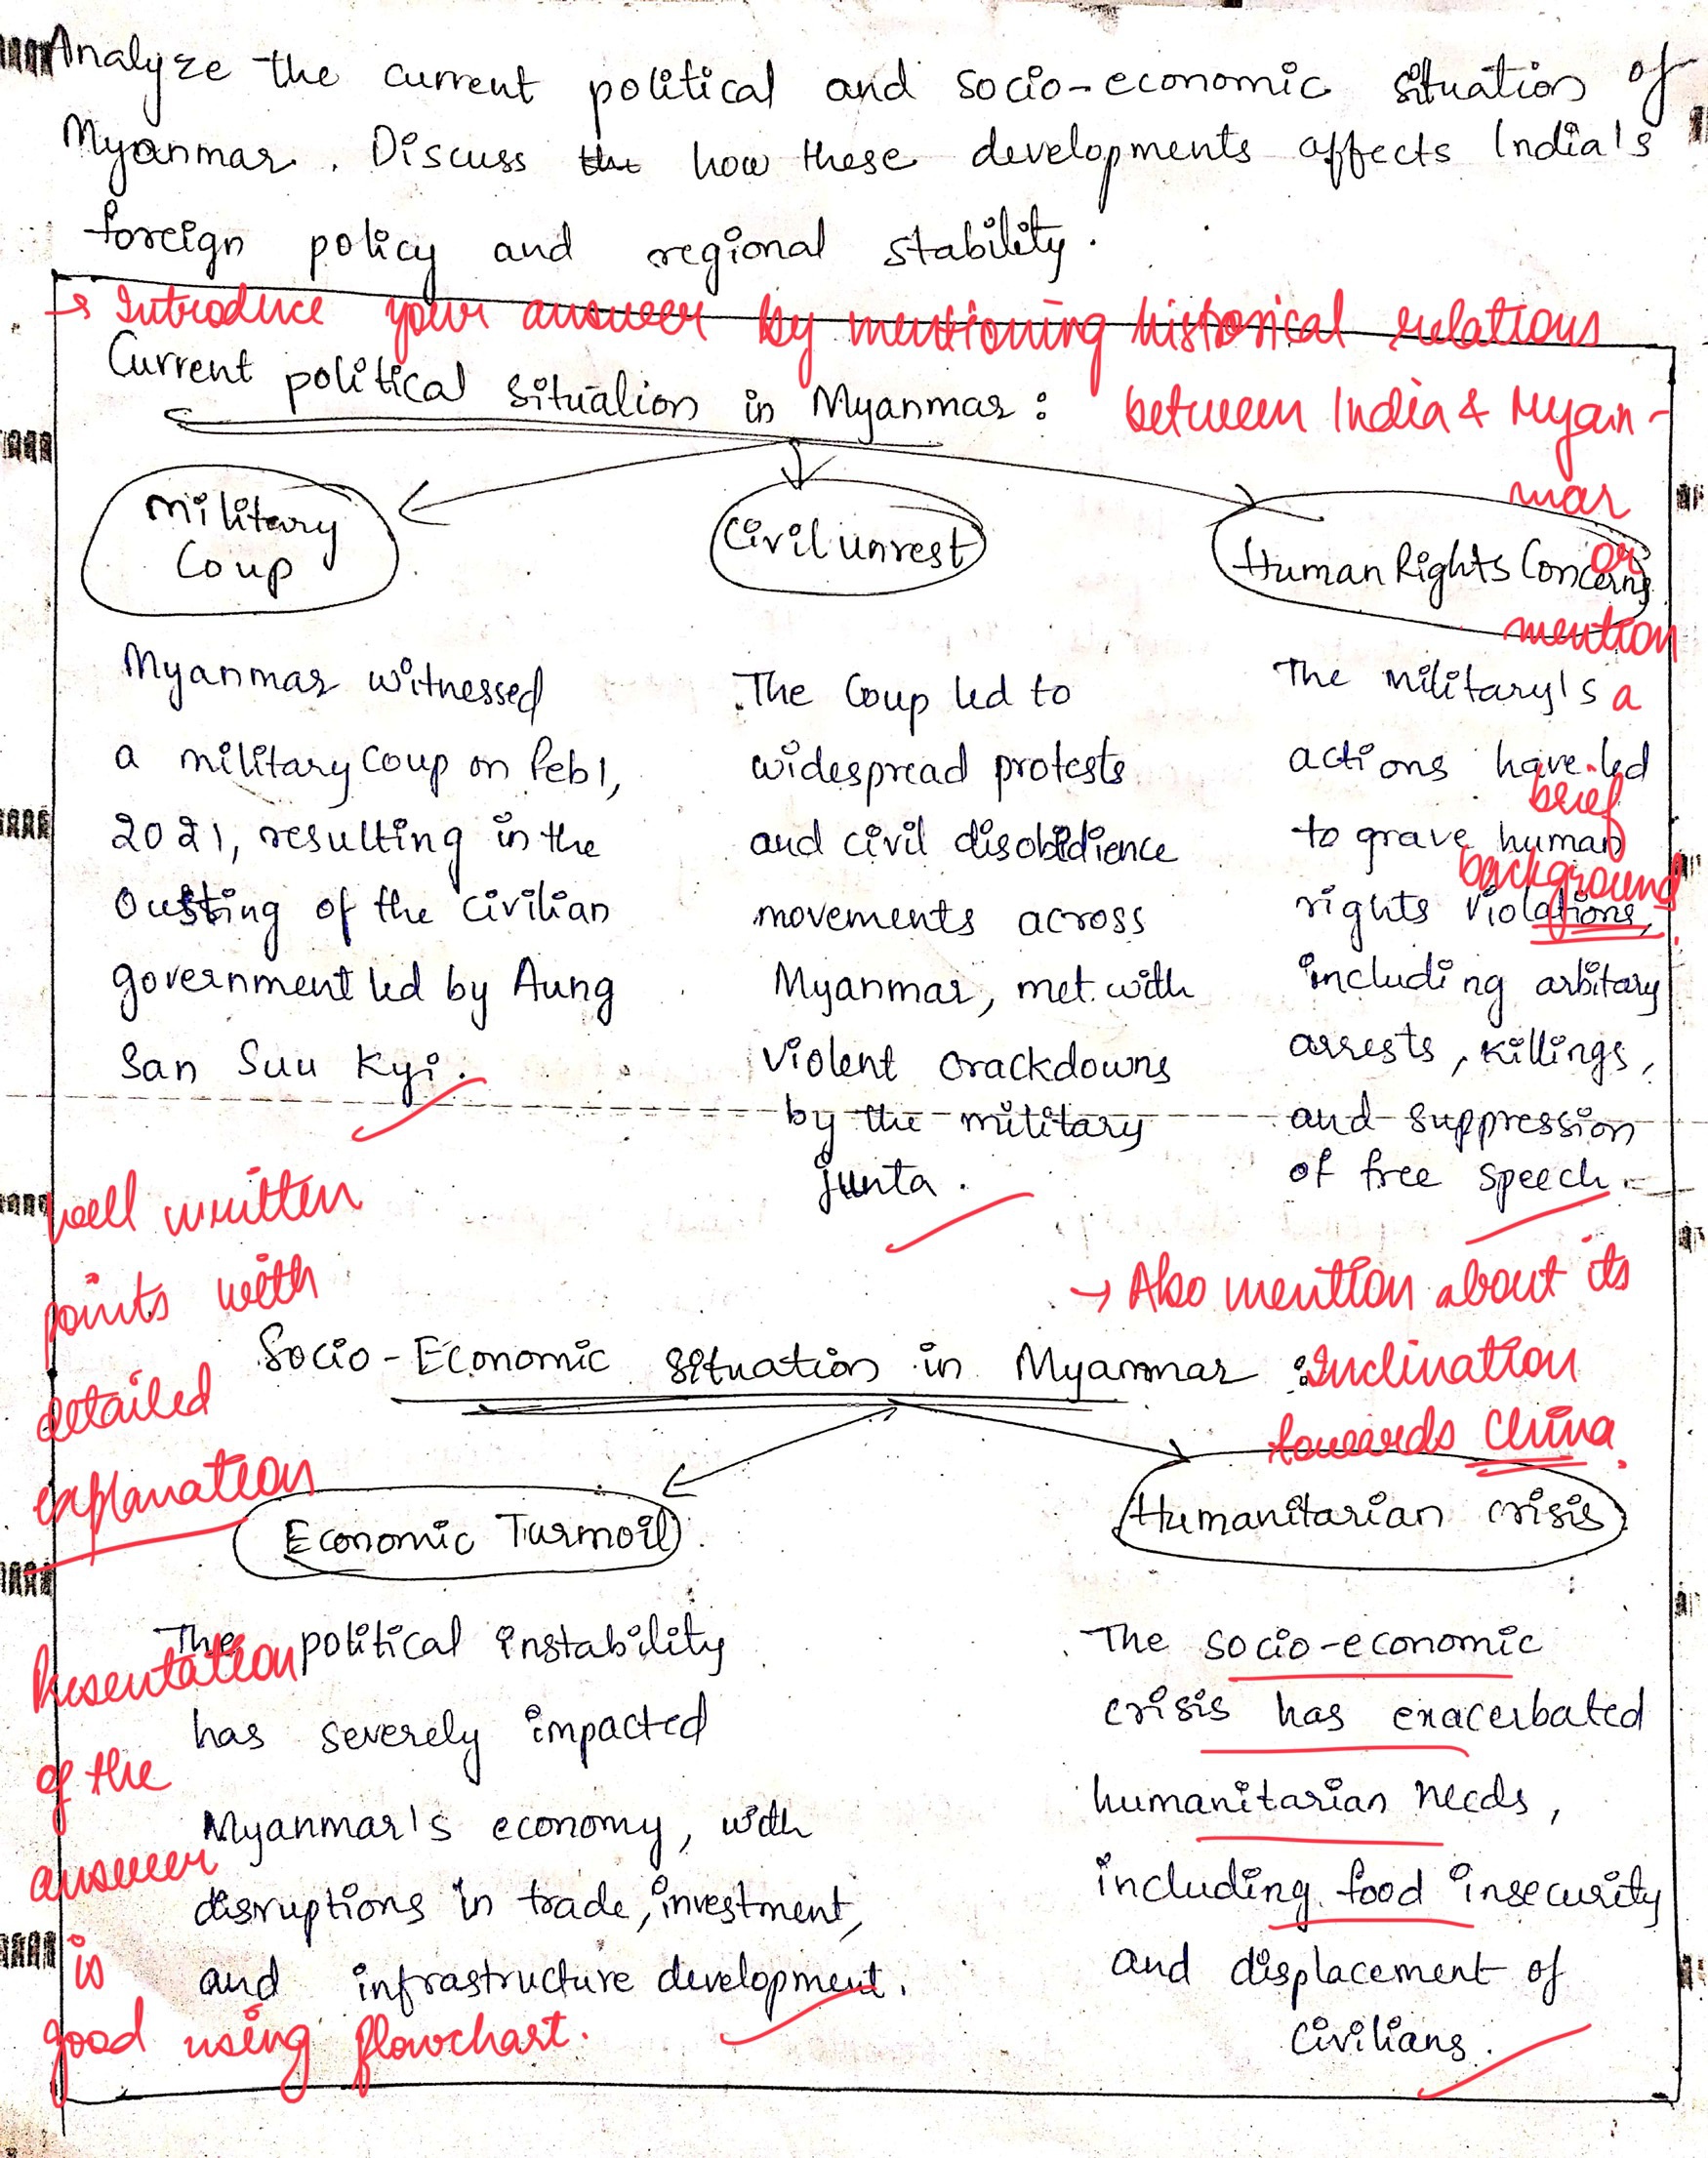 Analyze the current political and socio-economic situation of
Myanmar. Discuss the how these developments affects India's
foreign policy and regional stability.
→ Introduce your answer by mentioning historical relations
between India & Myan-
mar
or
mention
a
brief
background.
Current political situation in Myanmar:
Military
Coup
Myanmar witnessed
a military coup on Feb 1,
2021, resulting in the
Ousting of the civilian
government led by Aung
San Suu Kyi.
Civil unrest
The Coup led to
widespread protests
and civil disobidience
movements across
Myanmar, met with
violent crackdowns
by the military
junta.
Human Rights Concerns
The military's
actions have led
to grave human
rights violations,
including arbitary
arrests, killings,
and suppression
of free speech.
well written
points with
detailed
explanation
→ Also mention about its
Inclination
towards China.
Socio-Economic situation in Myanmar:
Economic Turmoil
The political instability
has severely impacted
Myanmar's economy, with
disruptions in trade, investment,
and infrastructure development.
Humanitarian crisis
The socio-economic
crisis has exacerbated
humanitarian needs,
including food insecurity
and displacement of
civilians.
Presentation
of the
answer
is
good using flowchart.